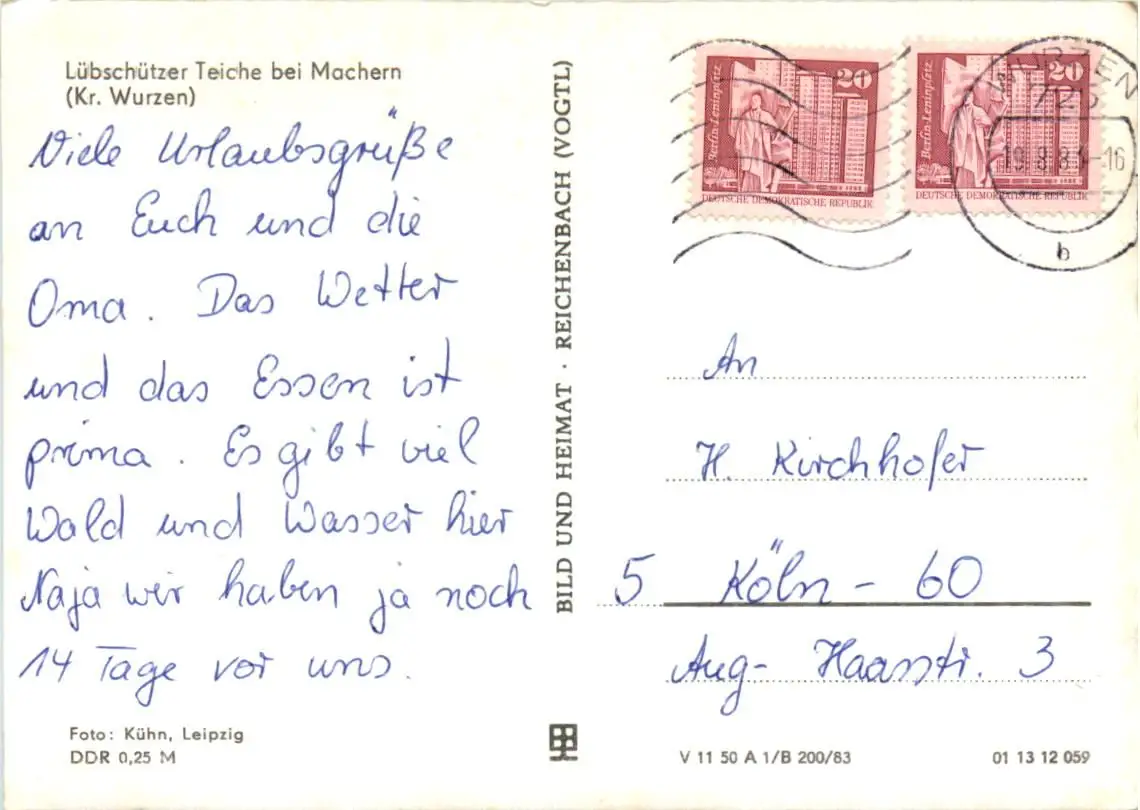 Lübschützer Teiche bei Machern
(Kr. Wurzen)
Viele Urlaubsgrüße
an Euch und die
Oma. Das Wetter
und das Essen ist
prima. Es gibt viel
Wald und Wasser hier
Naja wir haben ja noch
14 Tage vor uns.
Foto: Kühn, Leipzig
DDR 0,25 M
BILD UND HEIMAT · REICHENBACH (VOGTL)
20
Berlin-Leninplatz
DEUTSCHE DEMOKRATISCHE REPUBLIK
20
Berlin-Leninplatz
DEUTSCHE DEMOKRATISCHE REPUBLIK
WURZEN
b
An
H. Kirchhofer
5 Köln - 60
Aug- Haasstr. 3
V 11 50 A 1/B 200/83
01 13 12 059